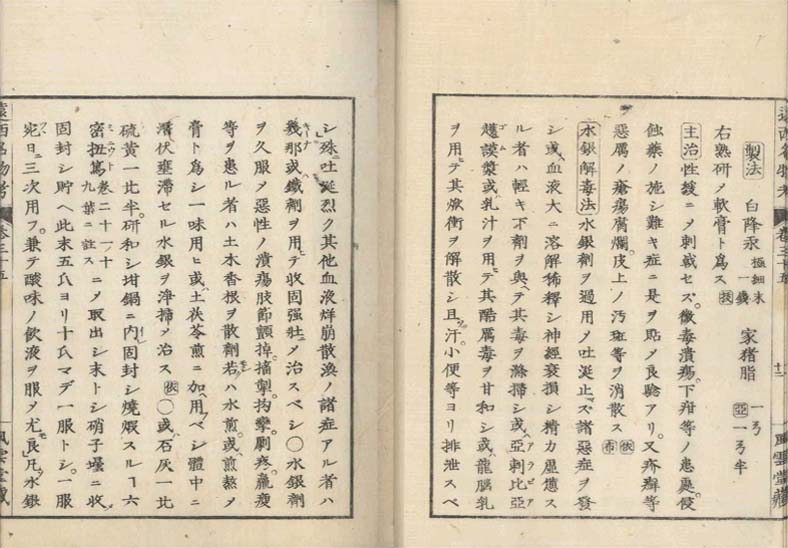 遠西名物考 卷三十五 風雲堂藏
製法 白降汞 極細末 一錢 家猪脂 一ゟ 亞一ゟ半
右熟研メ軟膏ト爲ス 扶
主治 性緩ニメ刺戟セズ。黴毒潰瘍。下疳等ノ患處。侵
蝕藥ノ施シ難キ症ニ是ヲ貼メ良驗アリ。又疥癬等
惡厲ノ瘡瘍腐爛。皮上ノ汚斑等ヲ消散ス 扶 布
水銀解毒法 水銀劑ヲ過用メ吐涎止マズ諸惡症ヲ發
シ或血液大ニ溶解稀釋シ神經衰損シ精力虛憊ス
ル者ハ輕キ下劑ヲ與テ其毒ヲ滌掃シ或亞刺比亞
護謨漿或乳汁ヲ用テ其酷厲毒ヲ甘和シ或龍腦乳
ヲ用テ其欝衝ヲ解散シ且汗。小便等ヨリ排泄スベ
シ殊ニ吐涎烈ク其他血液烊崩散渙ノ諸症アル者ハ
幾那或鐵劑ヲ用テ收固强壯メ治スベシ〇水銀劑
ヲ久服メ惡性ノ潰瘍肢節顫掉。搐掣。拘攣。劇疼。羸瘦
等ヲ患ル者ハ土木香根ヲ散劑若ハ水煎。或煎熬ヲ
膏ト爲シ一味用ヒ或土茯苓煎ニ加ヘ用フベシ體中ニ
潛伏壅滯セル水銀ヲ淨掃メ治ス 扶 〇或石灰一比
硫黄一比半。研和シ坩鍋ニ内レ固封シ燒煆スル十六
密扭篤 卷二十一ノ十九葉ニ註ス ニメ取出シ末トシ硝子壜ニ收メ
固封シ貯ヘ此末五氏ヨリ十氏マデヲ一服トシ。一服
宛日ニ三次用フ。兼テ酸味ノ飲液ヲ服メ尤良。凡水銀
遠西名物考 卷三十五 風雲堂藏